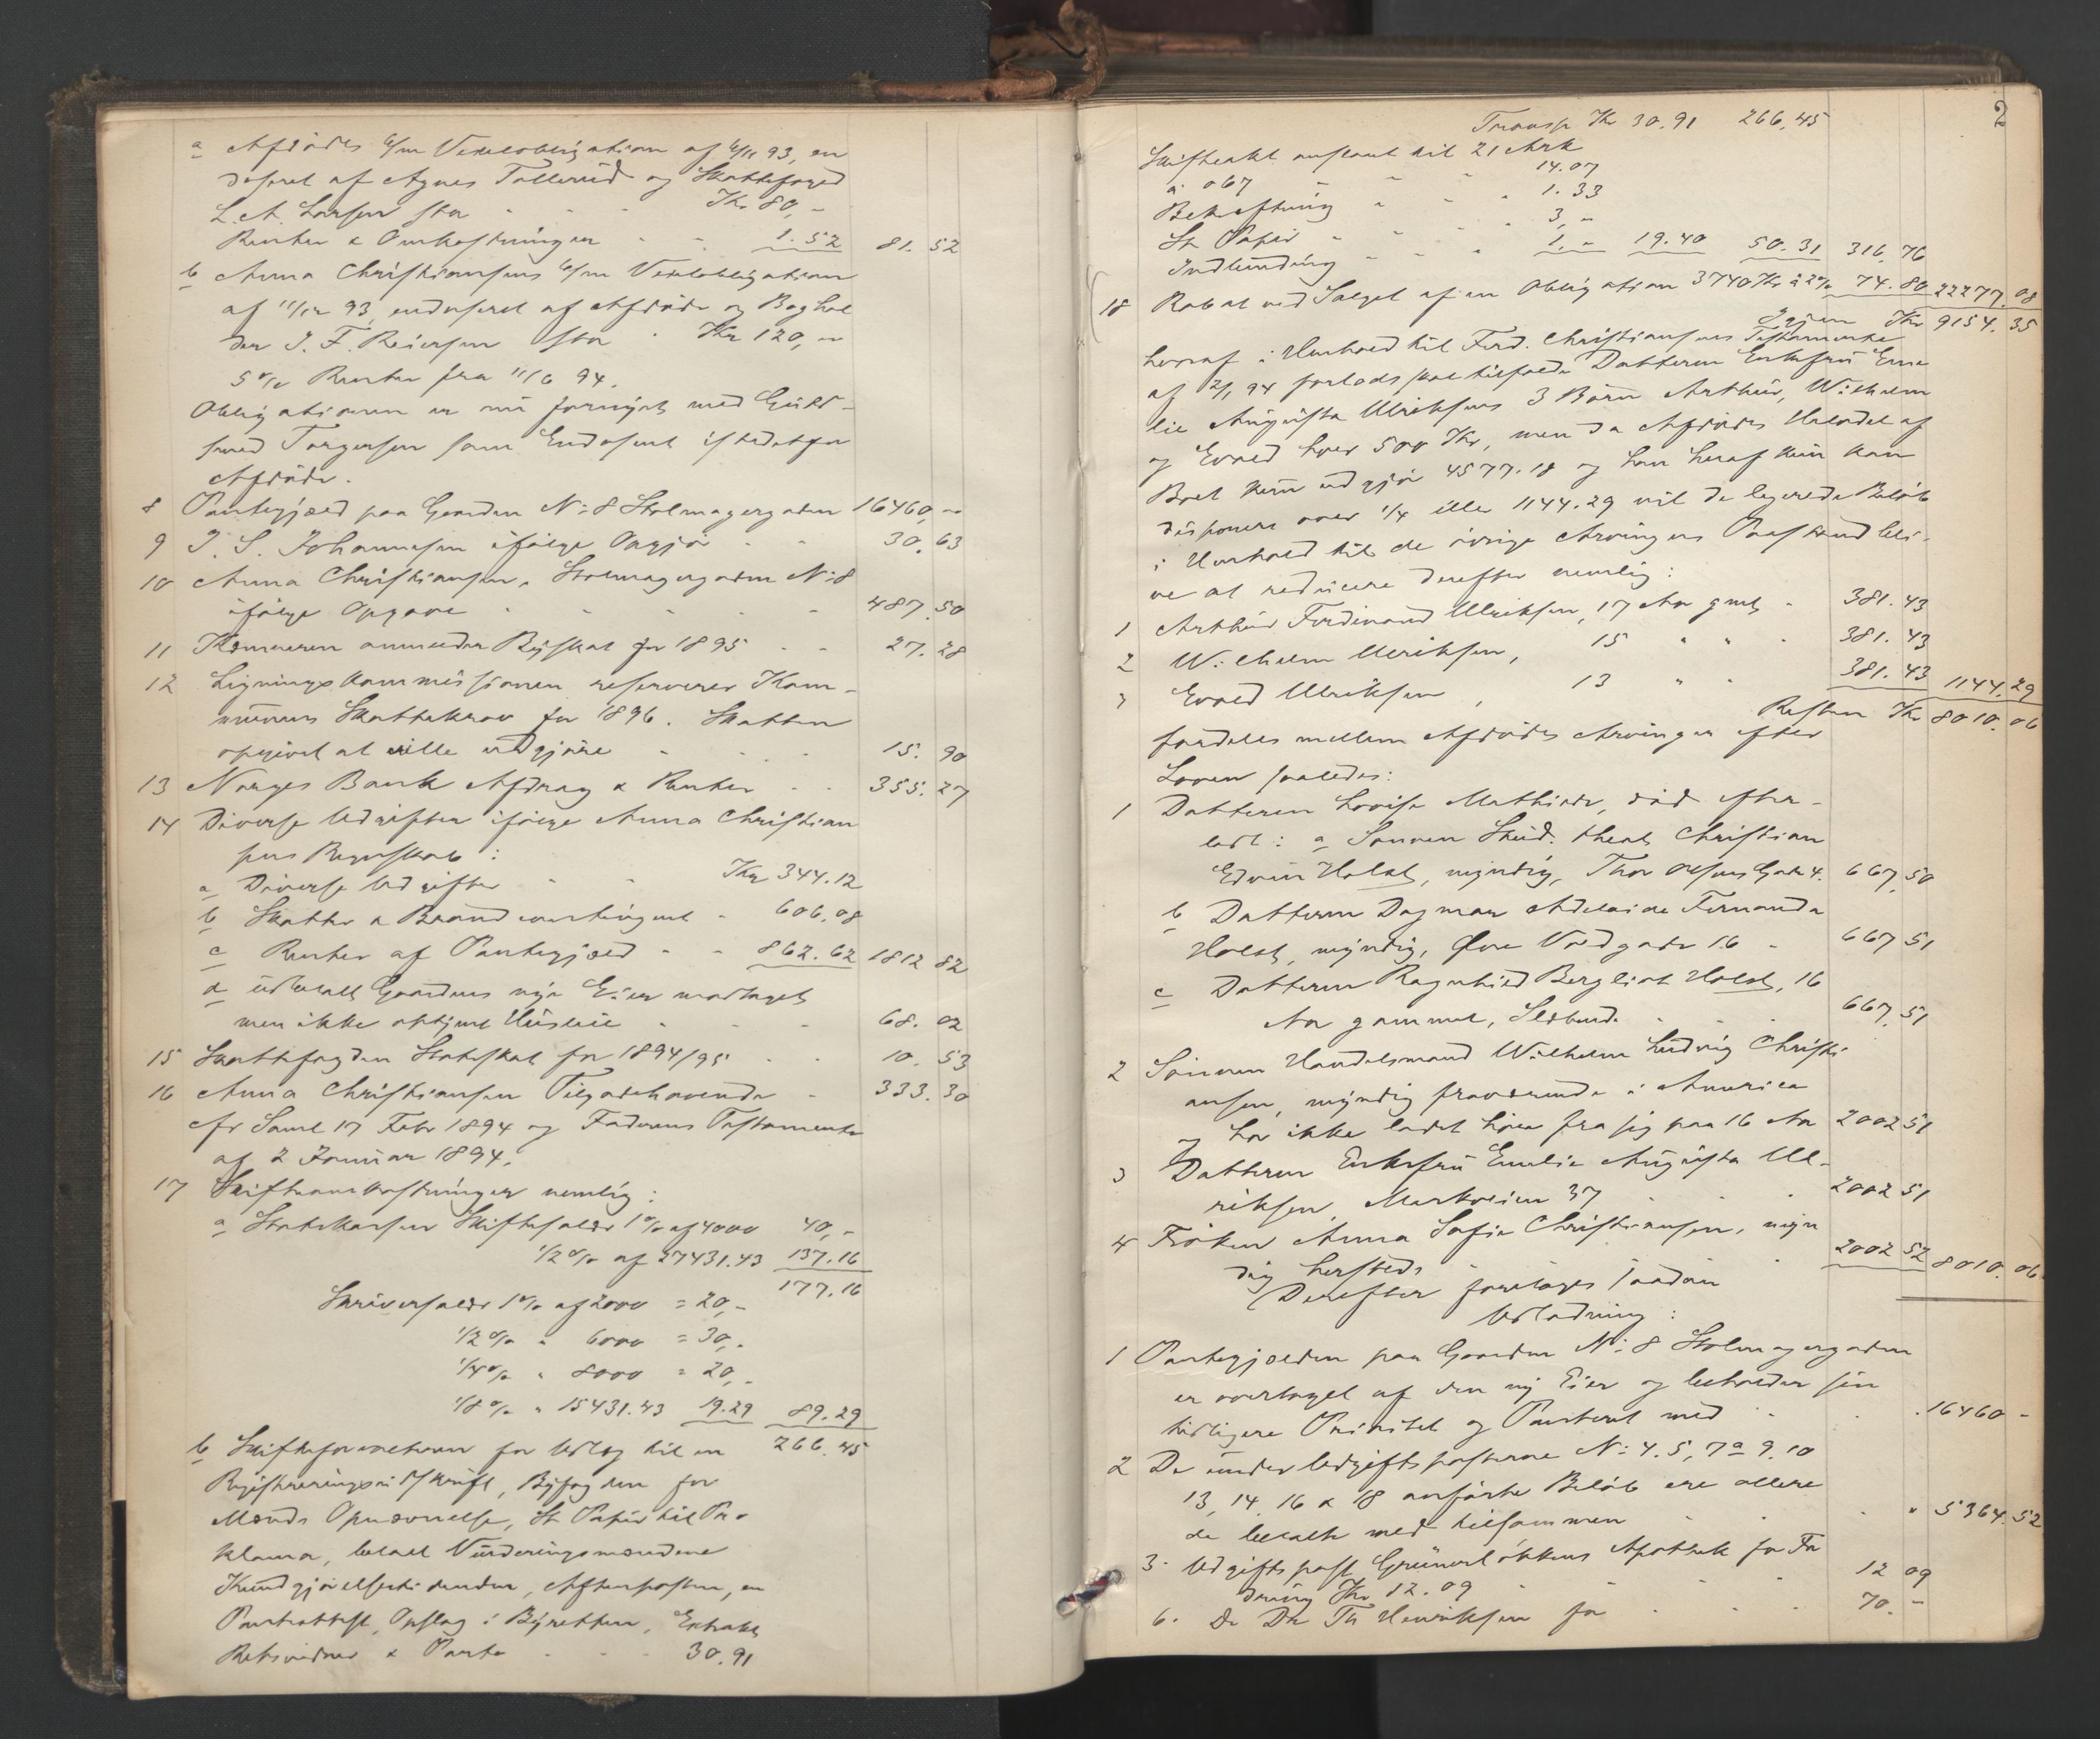 a Afdødes 6/m Vexelobligation af 6/11 93, en
doseret af Agnes Tollerud og Skattefoged
L. A. Larsen stor - - - Kr 80, -
Renter & Omkostninger - - 1.52 81. 52
b Anna Christiansens 6/m Vexelobligation
af 11/12 93, endoseret af Afdøde og Boghol
der J. F. Reiersen stor - Kr 120, -
5 % Renter fra 11/6 94.
Obligationen er nu fornyet med Guld-
smed Torgersen som Endosent istedetfor
Afdøde.
8 Pantegjæld paa Gaarden No 8 Stolmagergaden 16460, -
9 J. S. Johannesen ifølge Opgjør - - 30. 63
10 Anna Christiansen, Stolmagergaden No 8
ifølge Opgave - - - - - 487. 50
11 Kæmneren anmelder Byskat for 1895 - - 27. 28
12 Ligningskommissionen reserverer Kom-
munens Skattekrav for 1896. Skatten
opgivet at ville udgjøre - - - 15. 90
13 Norges Bank Afdrag & Renter - - 355. 27
14 Diverse Udgifter ifølge Anna Christian
sens Regnskab:
a Diverse Udgifter - - Kr 344.12
b Skatter & Brandcontingent - 606.08
c Renter af Pantegjæld - - 862.62 1812 82
d udbetalt Gaardens nye Eier modtaget
men ikke optjent Husleie - - - 68. 02
15 Skattefogden Statsskat for 1894/95 - - 10. 53
16 Anna Christiansen Tilgodehavende - 333. 30
cfr Saml 17 Febr 1894 og Faderens Testamente
af 2 Januar 1894.
17 Skifteomkostninger nemlig:
a Statskassen Skiftesalær 1 % af 4000 40, -
1/2 % af 27431.43 137.16
177.16
Skriversalær 1 % af 2000 = 20, -
1/2 % " 6000 = 30, -
1/4 % " 8000 = 20, -
1/8 % " 15431.43 19.29 89.29
b Skifteforvalteren for Udlæg til en 266.45
Registreringsudskrift, Byfogden for
Mænds Opnævnelse, St. Papir til Pro-
klama, betalt Vurderingsmændene
Kundgjørelsestidende, Aftenposten, en
Panteattest, Opslag i Byretten, Extrakt
Retsvidner & Porto - - - 30.91
2
Transp Kr 30.91 266.45
Skifteakt anslaaet til 21 Ark
à 067 - - - - 14.07
Bekræftning - - - 1.33
St Papir - - - - 3, -
Indbinding - - - 1. - 19.40 50.31 316. 76
18 Rabat ved Salget af en Obligation 3740 Kr à 2 % 74.80 22277. 08
Igjen Kr 9154. 35
hvoraf i Henhold til Ferd. Christiansens Testamente
af 2/1 94 forlods skal tilfalde Datteren Enkefru Emi
lie Augusta Ulriksens 3 Børn Arthur, Wilhelm
og Evald hver 500 Kr, men da Afdødes Halvdel af
Boet kun udgjør 4577.18 og han heraf kun kan
disponere over 1/4 eller 1144.29 vil de legerede Beløb
i Henhold til de øvrige Arvingers Paastand bli-
ve at reducere derefter nemlig:
1 Arthur Ferdinand Ulriksen, 17 Aar gml - 381.43
2 Wilhelm Ulriksen, 15 " " - 381.43
3 Evald Ulriksen, 13 " " - 381.43 1144. 29
Resten Kr 8010. 06
fordeles mellem Afdødes Arvinger efter
Loven saaledes:
1 Datteren Lovise Mathilde, død efter-
ladt: a Sønnen Stud. theol. Christian
Edvin Holst, myndig, Thor Olsens Gade 4. 667. 50
b Datteren Dagmar Adelaide Fernanda
Holst, myndig, Øvre Voldgade 16 - 667 51
c Datteren Ragnhild Bergliot Holst, 16
Aar gammel, - - - 667. 51
2 Sønnen Handelsmand Wilhelm Ludvig Christi
ansen, myndig fraværende i America
og har ikke ladet høre fra sig paa 16 Aar 2002 51
3 Datteren Enkefru Emilie Augusta Ul-
riksen, Markveien 37 - - - 2002 51
4 Frøken Anna Sofie Christiansen, myn
dig hersteds - - - 2002 52 8010. 06
Derefter foretages saadan
Udlodning:
1 Pantegjælden paa Gaarden No 8 Stolmagergaden
er overtaget af den ny Eier og beholder sin
tidligere Prioritet og Panteret med - - 16460 -
2 De under Udgiftsposterne No 4. 5, 7a 9. 10
13, 14, 16 & 18 anførte Beløb ere allere
de betalte med tilsammen - - - 5364. 52
3. Udgiftspost Grünerløkkens Apothek for For
dring Kr 12.09 - - - - 12 09
6. Do Dr Th Henriksen for - - - 70. -